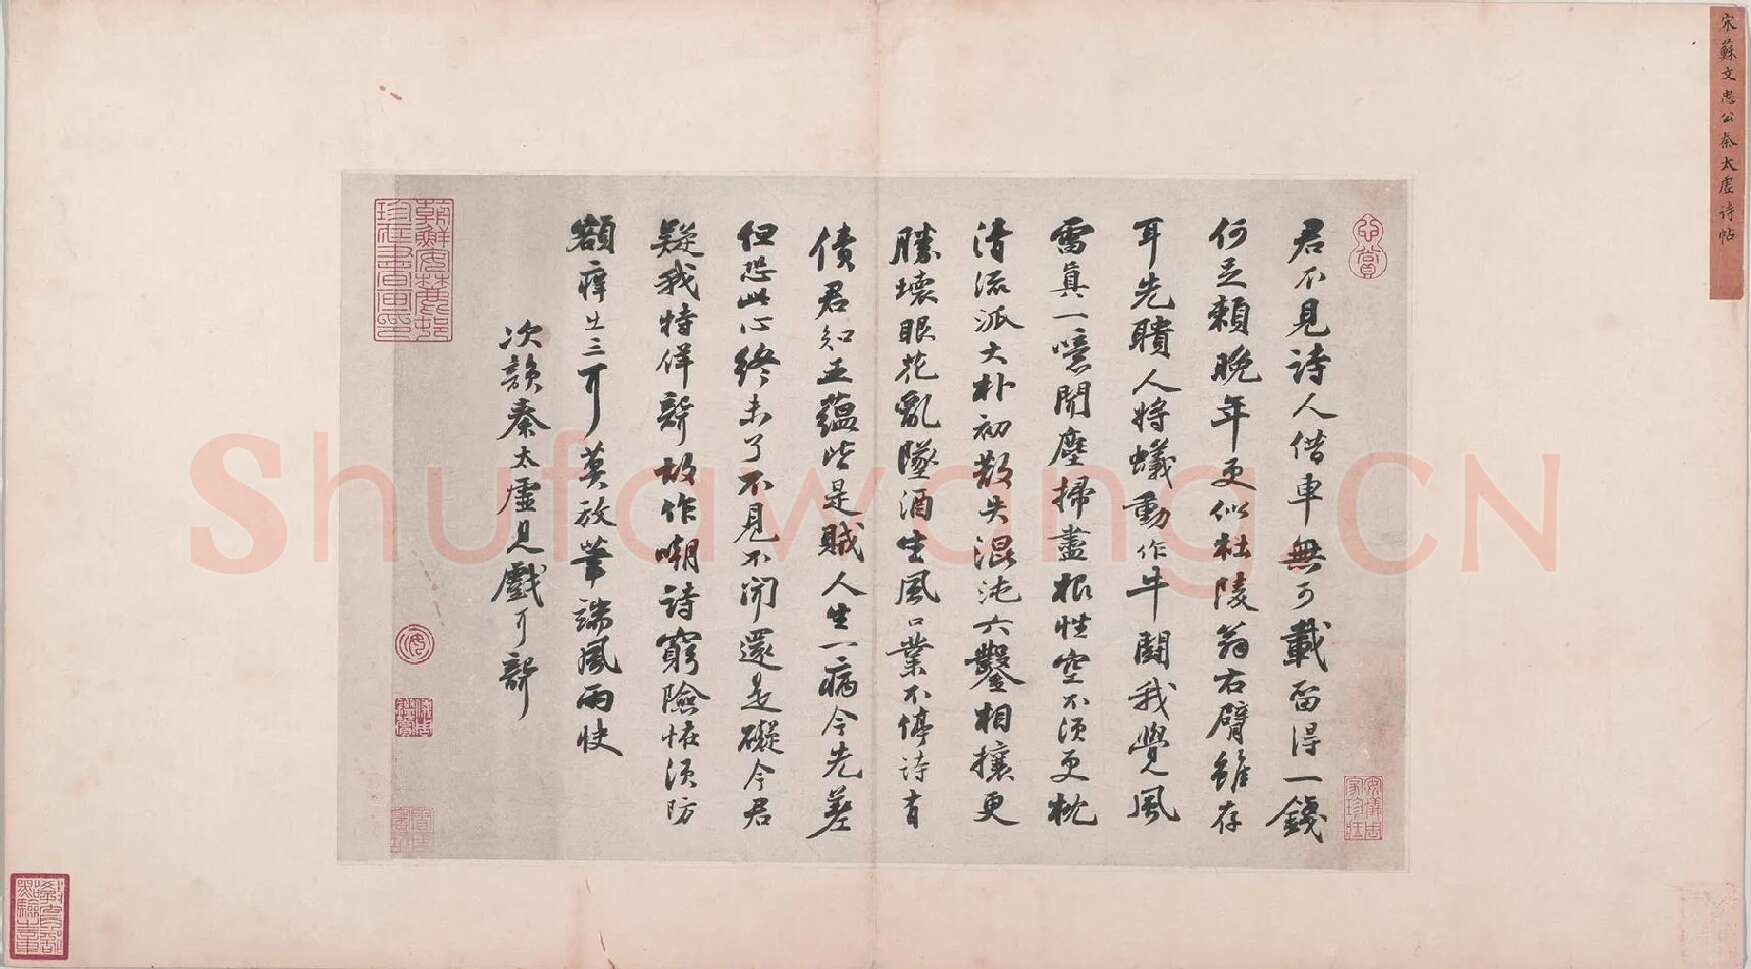 宋蘇文忠公秦太虛詩帖
君不見詩人借車無可載留得一錢
何足賴晚年更似杜陵翁右臂雖存
耳先聵人將蟻動作牛鬭我覺風
雷真一噫聞塵掃盡根性空不須更枕
清流派大朴初散失混沌六鑿相攘更
勝壞眼花亂墜酒生風口業不停詩有
債君知五蘊皆是賊人生一病今先差
但恐此心終未了不見不聞還是礙今君
疑我特佯聾故作嘲詩窮險怪須防
額痒出三耳莫放筆端風雨快
次韻秦太虛見戲耳聾
心賞
安儀周家珍藏
朝鮮安麓邨珍藏書畫印
Shufawang.CN